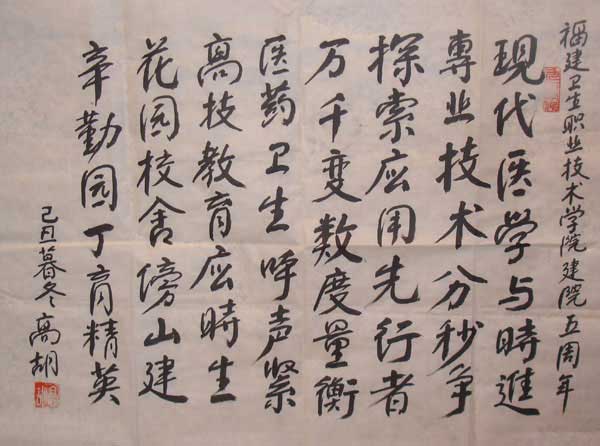 福建卫生职业技术学院建院五周年
现代医学与時進
專业技术分秒争
探索应用先行者
万千变数度量衡
医药卫生呼声紧
高技教育应時生
花园校舍傍山建
辛勤园丁育精英
己丑暮冬高胡